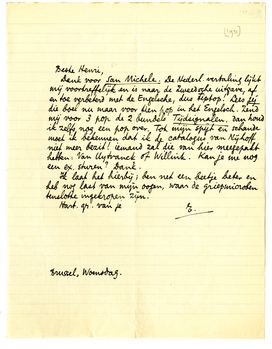 [1931]
Beste Henri,
Dank voor San Michele. De Nederl vertaling lijkt
mij voortreffelijk en is naar de Zweedsche uitgave, af
en toe verbeterd met de Engelsche, dus tiptop! Lees jij
die boel nu maar voor tien pop in het Engelsch. Zend
mij voor 3 pop de 2 bundels Tijdsignalen, dan houd
ik zelfs nog een pop over. Tot mijn spijt en schande
moet ik bekennen dat ik de catalogus van Nijhoff
niet meer bezit! iemand zal die van hier meegepakt
hebben: Van Uytvanck of Willink. Kan je me nog
een ex. sturen? Dank.
Ik laat het hierbij; ben net een beetje beter en
heb nog last van mijn oogen, waar de griepmicroben
tenslotte ingekropen zijn.
Hart. gr. van je
E.
Brussel, Woensdag.